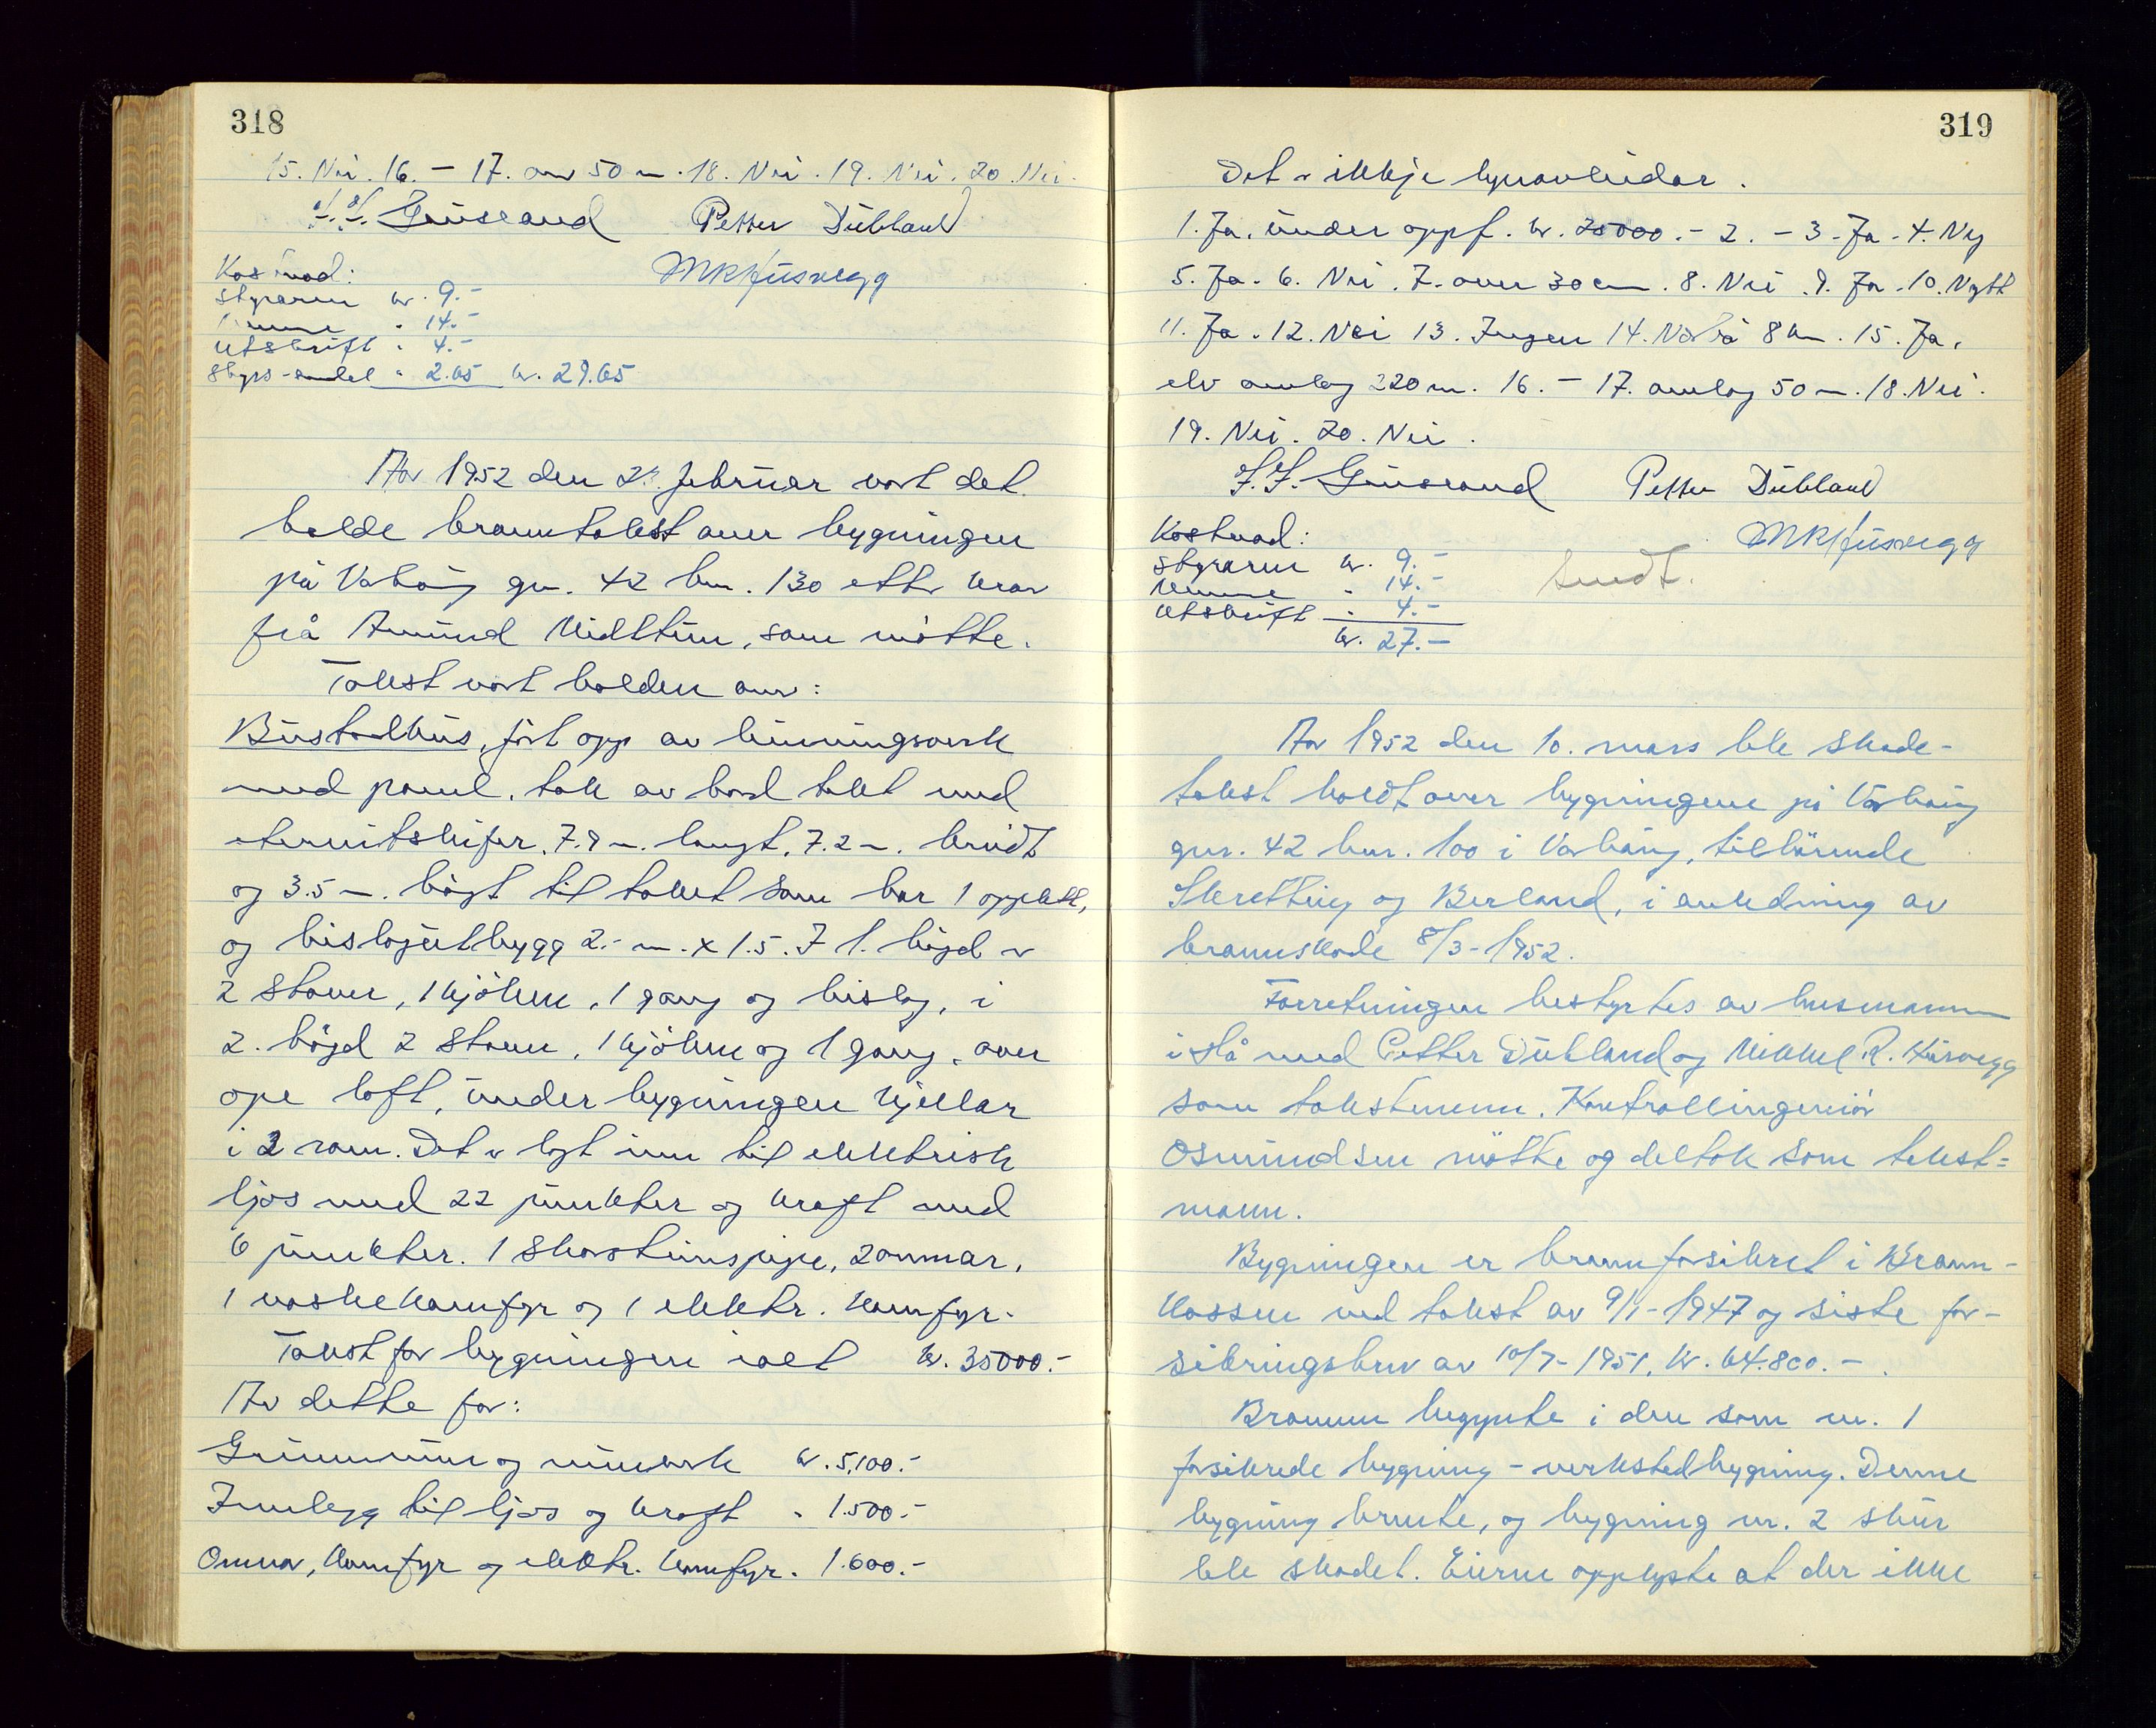 318
15. Nei. 16. – 17. over 50 m. 18. Nei. 19. Nei. 20. Nei.
Grusrand Petter Dubland
MRHusvegg
Kostnad:
Styraren kr. 9.-
" 14.-
Utskrift " 4.-
2.65 kr. 29.65
År 1952 den februar vart det
halde branntakst over bygningen
på Varhaug gnr. 42 bnr. 130 etter krav
frå Amund Midttun, som møtte.
Takst vart halden over:
Bustadhus, ført opp av binningsverk
med panel, tak av bord tekt med
eternitskifer, 7.9 m. langt, 7.2 m. breidt
og 3.5 m. høgt til taket som har 1 opplett,
og bislagutbygg 2.- m. x 1.5. I 1. høgd er
2 stover, 1 kjøken, 1 gang og bislag, i
2. høgd 2 stover, 1 kjøken og 1 gang, over
ope loft, under bygningen kjellar
i 2 rom. Det er lagt inn til elektrisk
ljos med 22 punkter og kraft med
6 punkter. 1 skorsteinspipe, 2 omnar,
1 vaskekomfyr og 1 elektr. komfyr.
Takst for bygningen ialt kr. 35000.-
Av dette for:
Grunnmur og murverk kr. 5,100.-
Innlegg til ljos og kraft " 1.500.-
Omnar, komfyr og elektr. komfyr " 1.600.-
319
Det er ikkje lynavleidar.
1. Ja, under oppf. kr. 25000.- 2. – 3. Ja. 4. Ny
5. Ja. 6. Nei. 7. over 30 cm. 8. Nei. 9. Ja. 10. Nytt
11. Ja. 12. Nei 13. Ingen 14. Nærbø 8 km. 15. Ja,
elv omlag 220 m. 16. – 17. omlag 50 m. 18. Nei.
19. Nei. 20. Nei.
J.J. Grusrand Petter Dubland
MRHusvegg
Kostnad:
Styraren kr. 9.-
Menne " 14.-
Utskrift " 4.-
kr. 27.-
Sendt.
År 1952 den 10. mars ble skade-
takst holdt over bygningene på Varhaug
gnr. 42 bnr. 100 i Varhaug, tilhørende
Skretting og Berland, i anledning av
brannskade 8/3-1952.
Forretningen bestyrtes av lensmannen
i Hå med Petter Dubland og Mikkel R. Husvegg
som takstmenn. Kontrollingeniør
Osmundsen møtte og deltok som takst=
mann.
Bygningen er brannforsikret i Brann-
kassen ved takst av 9/1-1947 og siste for-
sikringsbrev av 10/7-1951, kr. 64.800.-
Brannen begynte i den som nr. 1
forsikrede bygning – verkstedbygning. Denne
bygning brente, og bygning nr. 2 skur
ble skadet. Eierne opplyste at der ikke